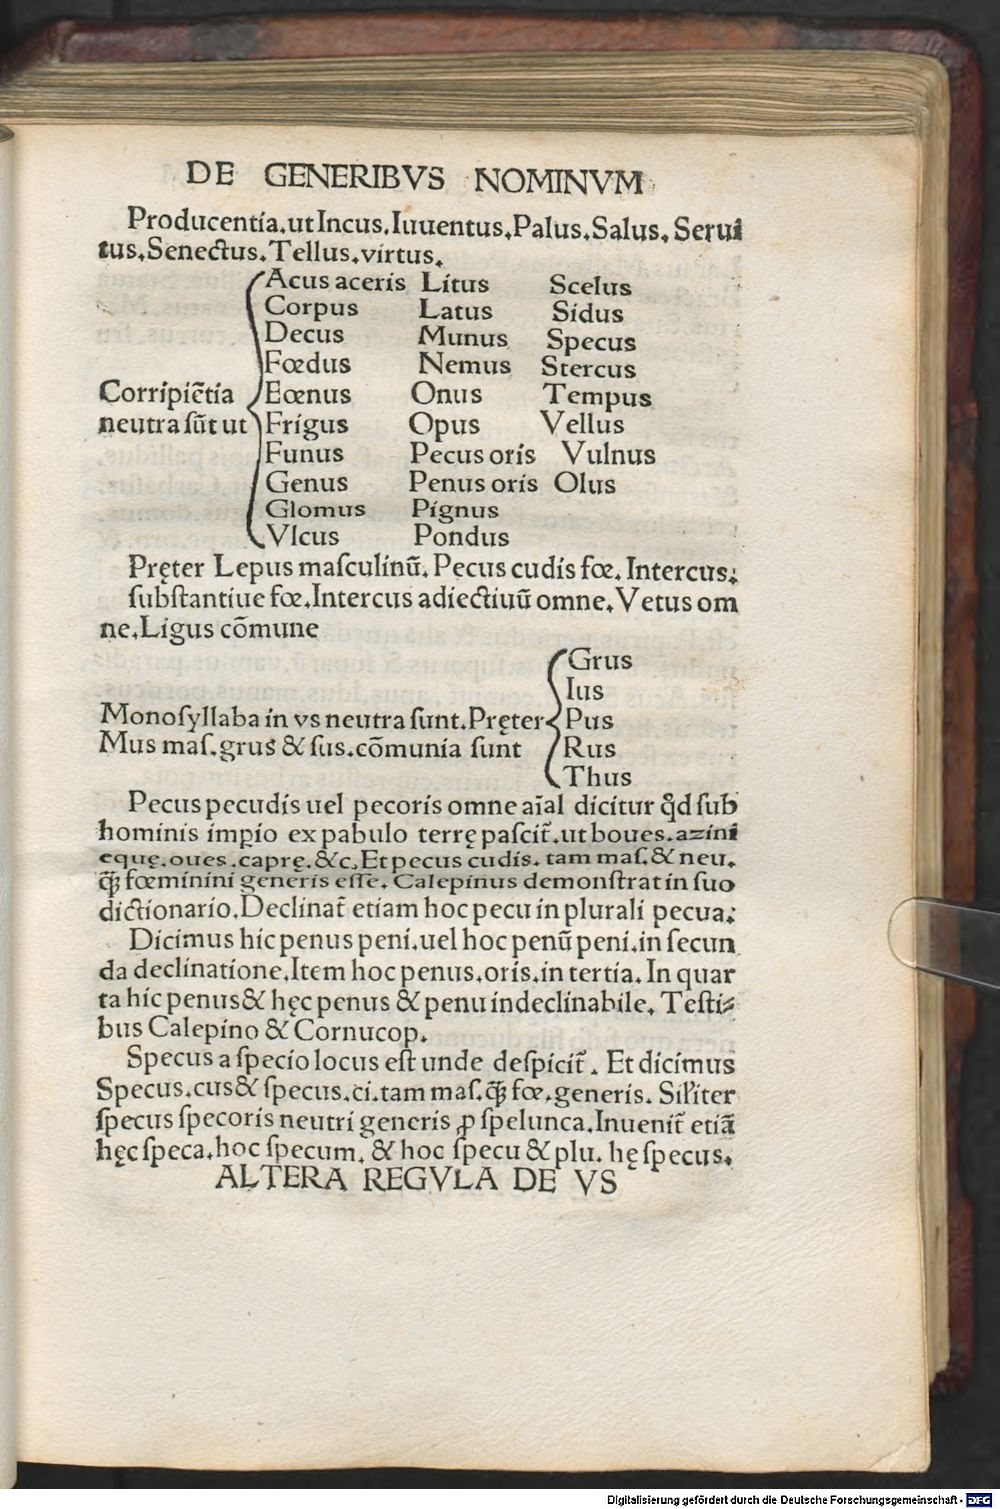 DE GENERIBVS NOMINVM
Producentia.ut Incus.Iuuentus.Palus.Salus.Serui
tus.Senectus.Tellus.virtus.
Acus aceris Litus Scelus
Corpus Latus Sidus
Decus Munus Specus
Fœdus Nemus Stercus
Corripiẽtia Eœnus Onus Tempus
neutra sũt ut Frigus Opus Vellus
Funus Pecus oris Vulnus
Genus Penus oris Olus
Glomus Pignus
Vlcus Pondus
Pręter Lepus masculinũ. Pecus cudis fœ. Intercus.
substantiue fœ.Intercus adiectiuũ omne.Vetus om
ne.Ligus cõmune
Grus
Ius
Monosyllaba in vs neutra sunt.Pręter Pus
Mus mas.grus & sus.cõmunia sunt Rus
Thus
Pecus pecudis uel pecoris omne aĩal dicitur ꝙd sub
hominis impio ex pabulo terrę pascit̃.ut boues.azini
equę.oues.caprę.&c.Et pecus cudis.tam mas.& neu.
ꝙ̃ fœminini generis esse. Calepinus demonstrat in suo
dictionario.Declinat̃ etiam hoc pecu in plurali pecua.
Dicimus hic penus peni.uel hoc penũ peni.in secun
da declinatione.Item hoc penus.oris.in tertia. In quar
ta hic penus & hęc penus & penu indeclinabile. Testi⸗
bus Calepino & Cornucop.
Specus a specio locus est unde despicit̃. Et dicimus
Specus.cus & specus.ci.tam mas.ꝙ̃ fœ.generis. Sil'iter
specus specoris neutri generis ꝓ spelunca.Inuenit̃ etiã
hęc speca.hoc specum. & hoc specu & plu. hę specus.
ALTERA REGVLA DE VS
Digitalisierung gefördert durch die Deutsche Forschungsgemeinschaft - DFG